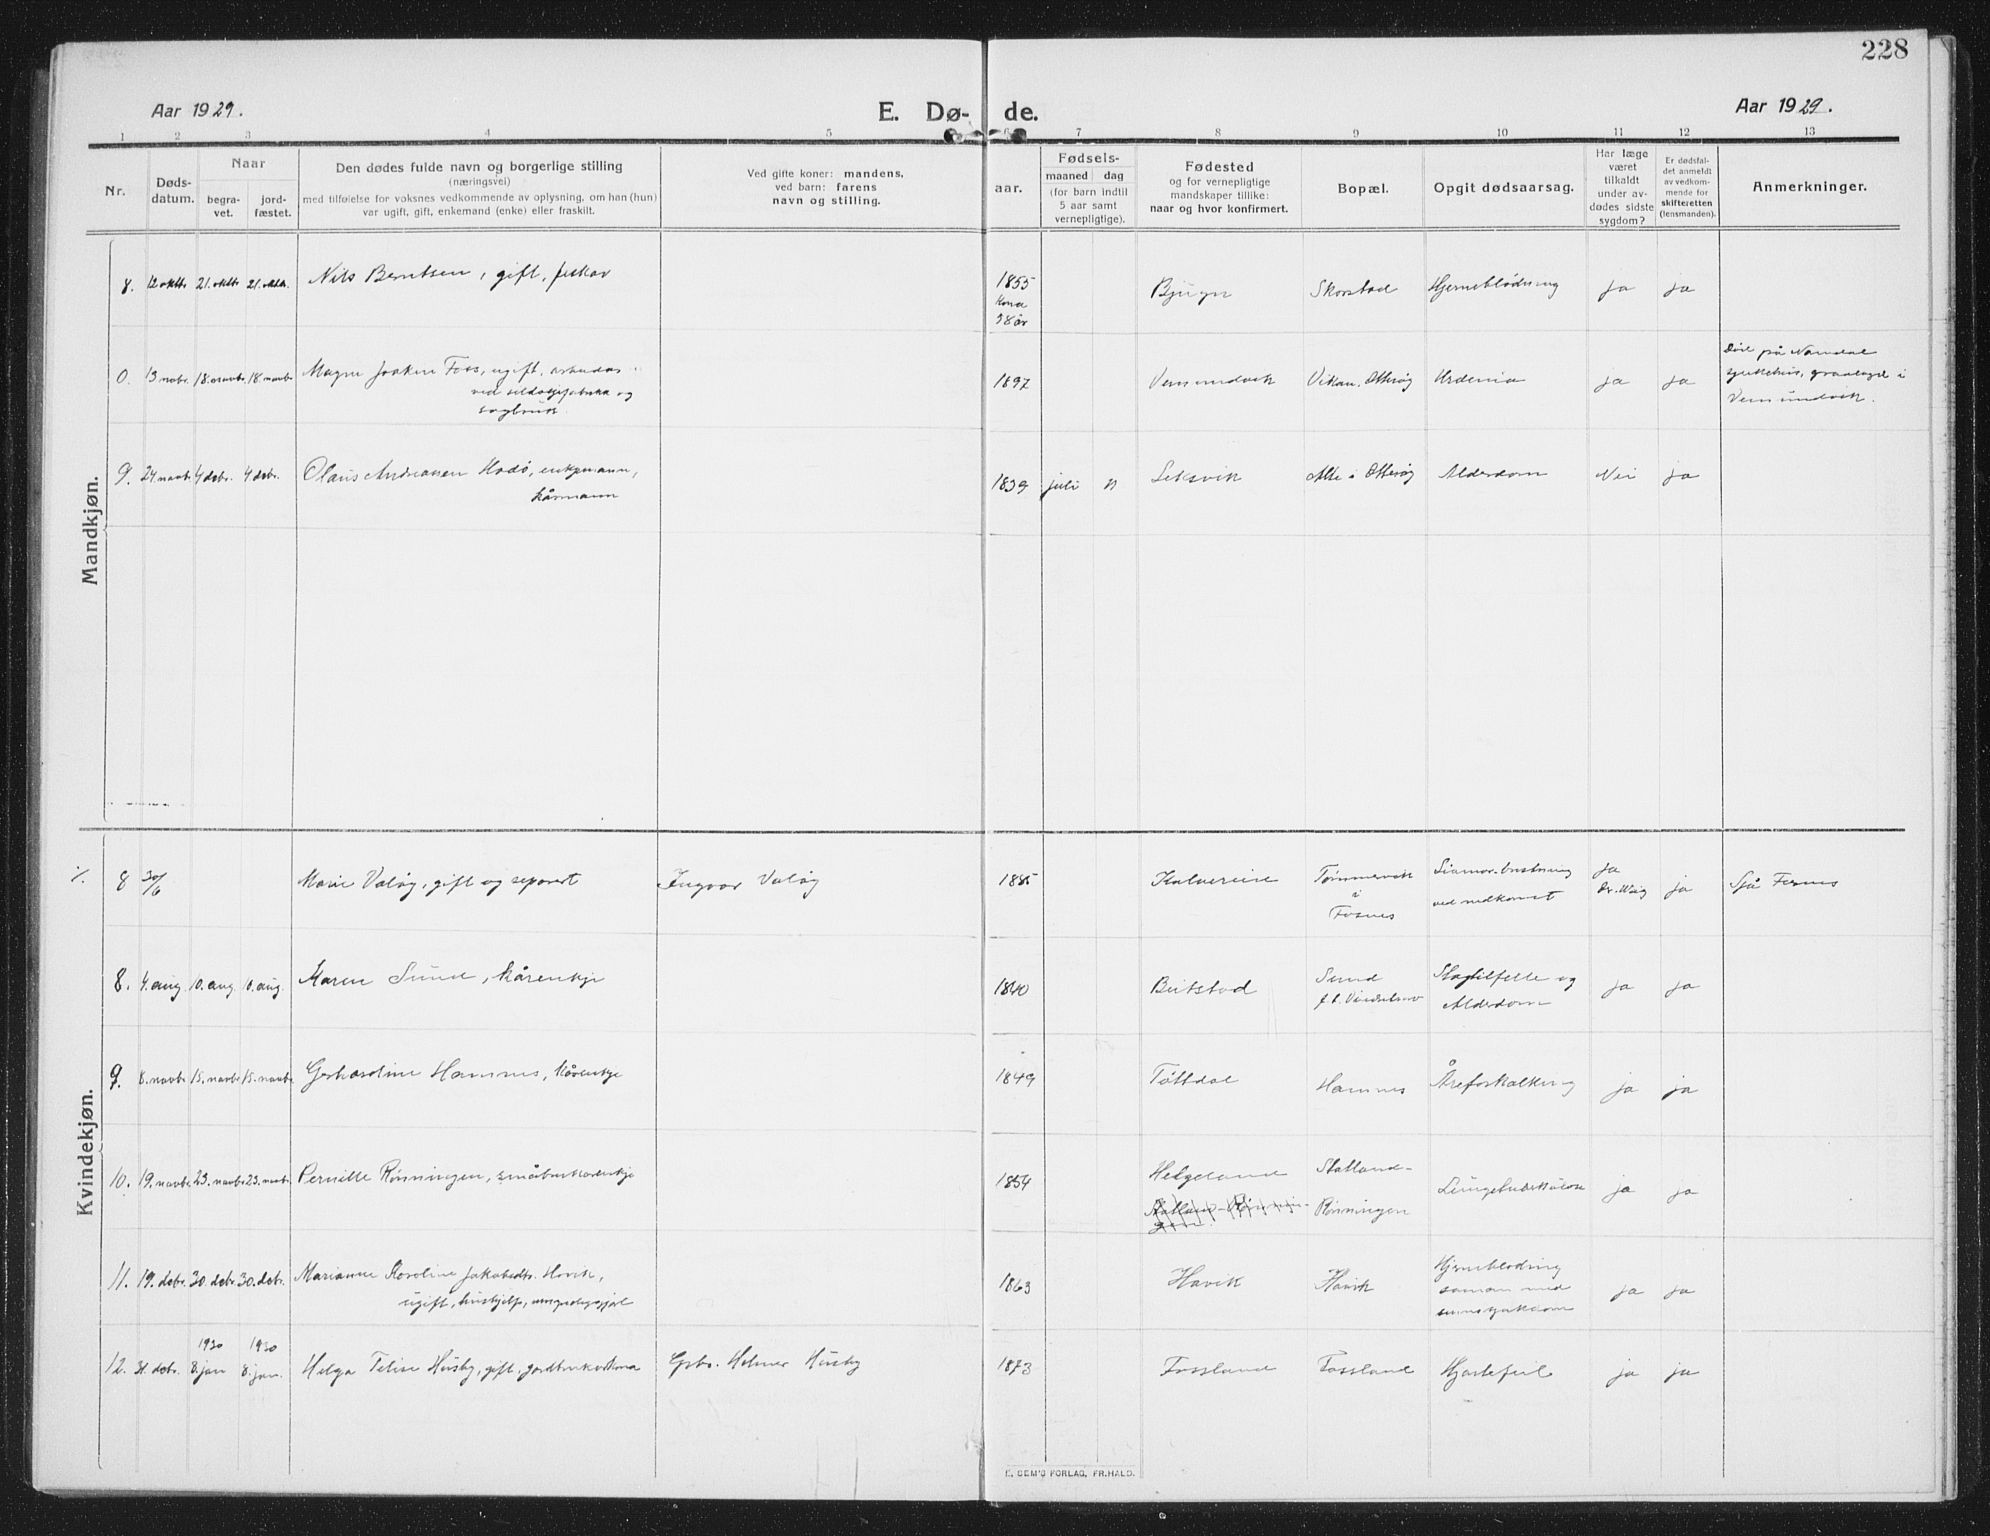 228
Aar 1929.
E. Dø- de.
Aar 1929.
1 2 3 4 5 6 7 8 9 10 11 12 13
Nr.
Døds-
datum.
Naar
begra-
vet.
jord-
fæstet.
Den dødes fulde navn og borgerlige stilling
(næringsvei)
med tilføielse for voksnes vedkommende av oplysning, om han (hun)
var ugift, gift, enkemand (enke) eller fraskilt.
Ved gifte koner: mandens,
ved barn: farens
navn og stilling.
aar.
Fødsels-
maaned dag
(for barn indtil
5 aar samt
vernepligtige).
Fødested
og for vernepligtige
mandskaper tillike:
naar og hvor konfirmert.
Bopæl.
Opgit dødsaarsag.
Har læge
været
tilkaldt
under av-
dødes sidste
sygdom?
Er dødsfal-
det anmeldt
av vedkom-
mende for
skifteretten
(lensmanden).
Anmerkninger.
Mandkjøn.
8. 12 oktbr 21. oktbr 21. oktbr. Nils Berntsen, gift, fiskar 1855 Bjugn Skorstad Hjerneblödning ja ja
Kona
38 år
0. 13 novbr. 18. novbr. 18. novbr. Magne Joakim Foss, ugift, arbeidar 1897 Vemundvik Vikan, Otterøy ja ja
ved sildoljefabrikk og
sagbruk.
Död på Namdal
sjukehus, gravlagd i
Vemundvik.
9. 24. novbr. 4 debr. 4 debr. Olaus Andreassen Hodö, enkjemann, 1839 juli Leksvik Alte i Otterøy Alderdom Nei ja
kårmann
Kvindekjøn.
8 30/6 Marie Valöy, gift og separert Ingvar Valöy 1885 Kalvereine Tömmervik
i
Fosnes
ved nedkomst
ja
ja
Sjå Fosnes
8. 4. aug. 10. aug. 10. aug. Maren Sund, kårenkje 1840 Beitstad Sund Slagtilfelle og
Alderdom
ja ja
9. 8. novbr. 15. novbr. 15. novbr. Gerhardine Hamnes, kårenkje 1849 Töttdal Hamnes Åreforkalking ja ja
10. 19. novbr. 23. novbr. 23. novbr. Pernille Rönningen, småbrukarenkje 1854 Helgeland Statland-
Rönningen
ja ja
11. 19. debr. 30. debr. 30. debr. Marianne Karoline Jakobsdtr. Hovik, 1863 Havik Havik Hjerneblødning
saman med
sinnssjukdom
ja ja
ugift, hushjelp,
1930 1930
12. 31. debr. 8. jan 8. jan. Helga Teline Husby, gift, jordbrukarkona Grbr. Helmer Husby 1873 Fossland Fossland Hjartefeil ja ja
E. SEM'S FORLAG, FR.HALD.